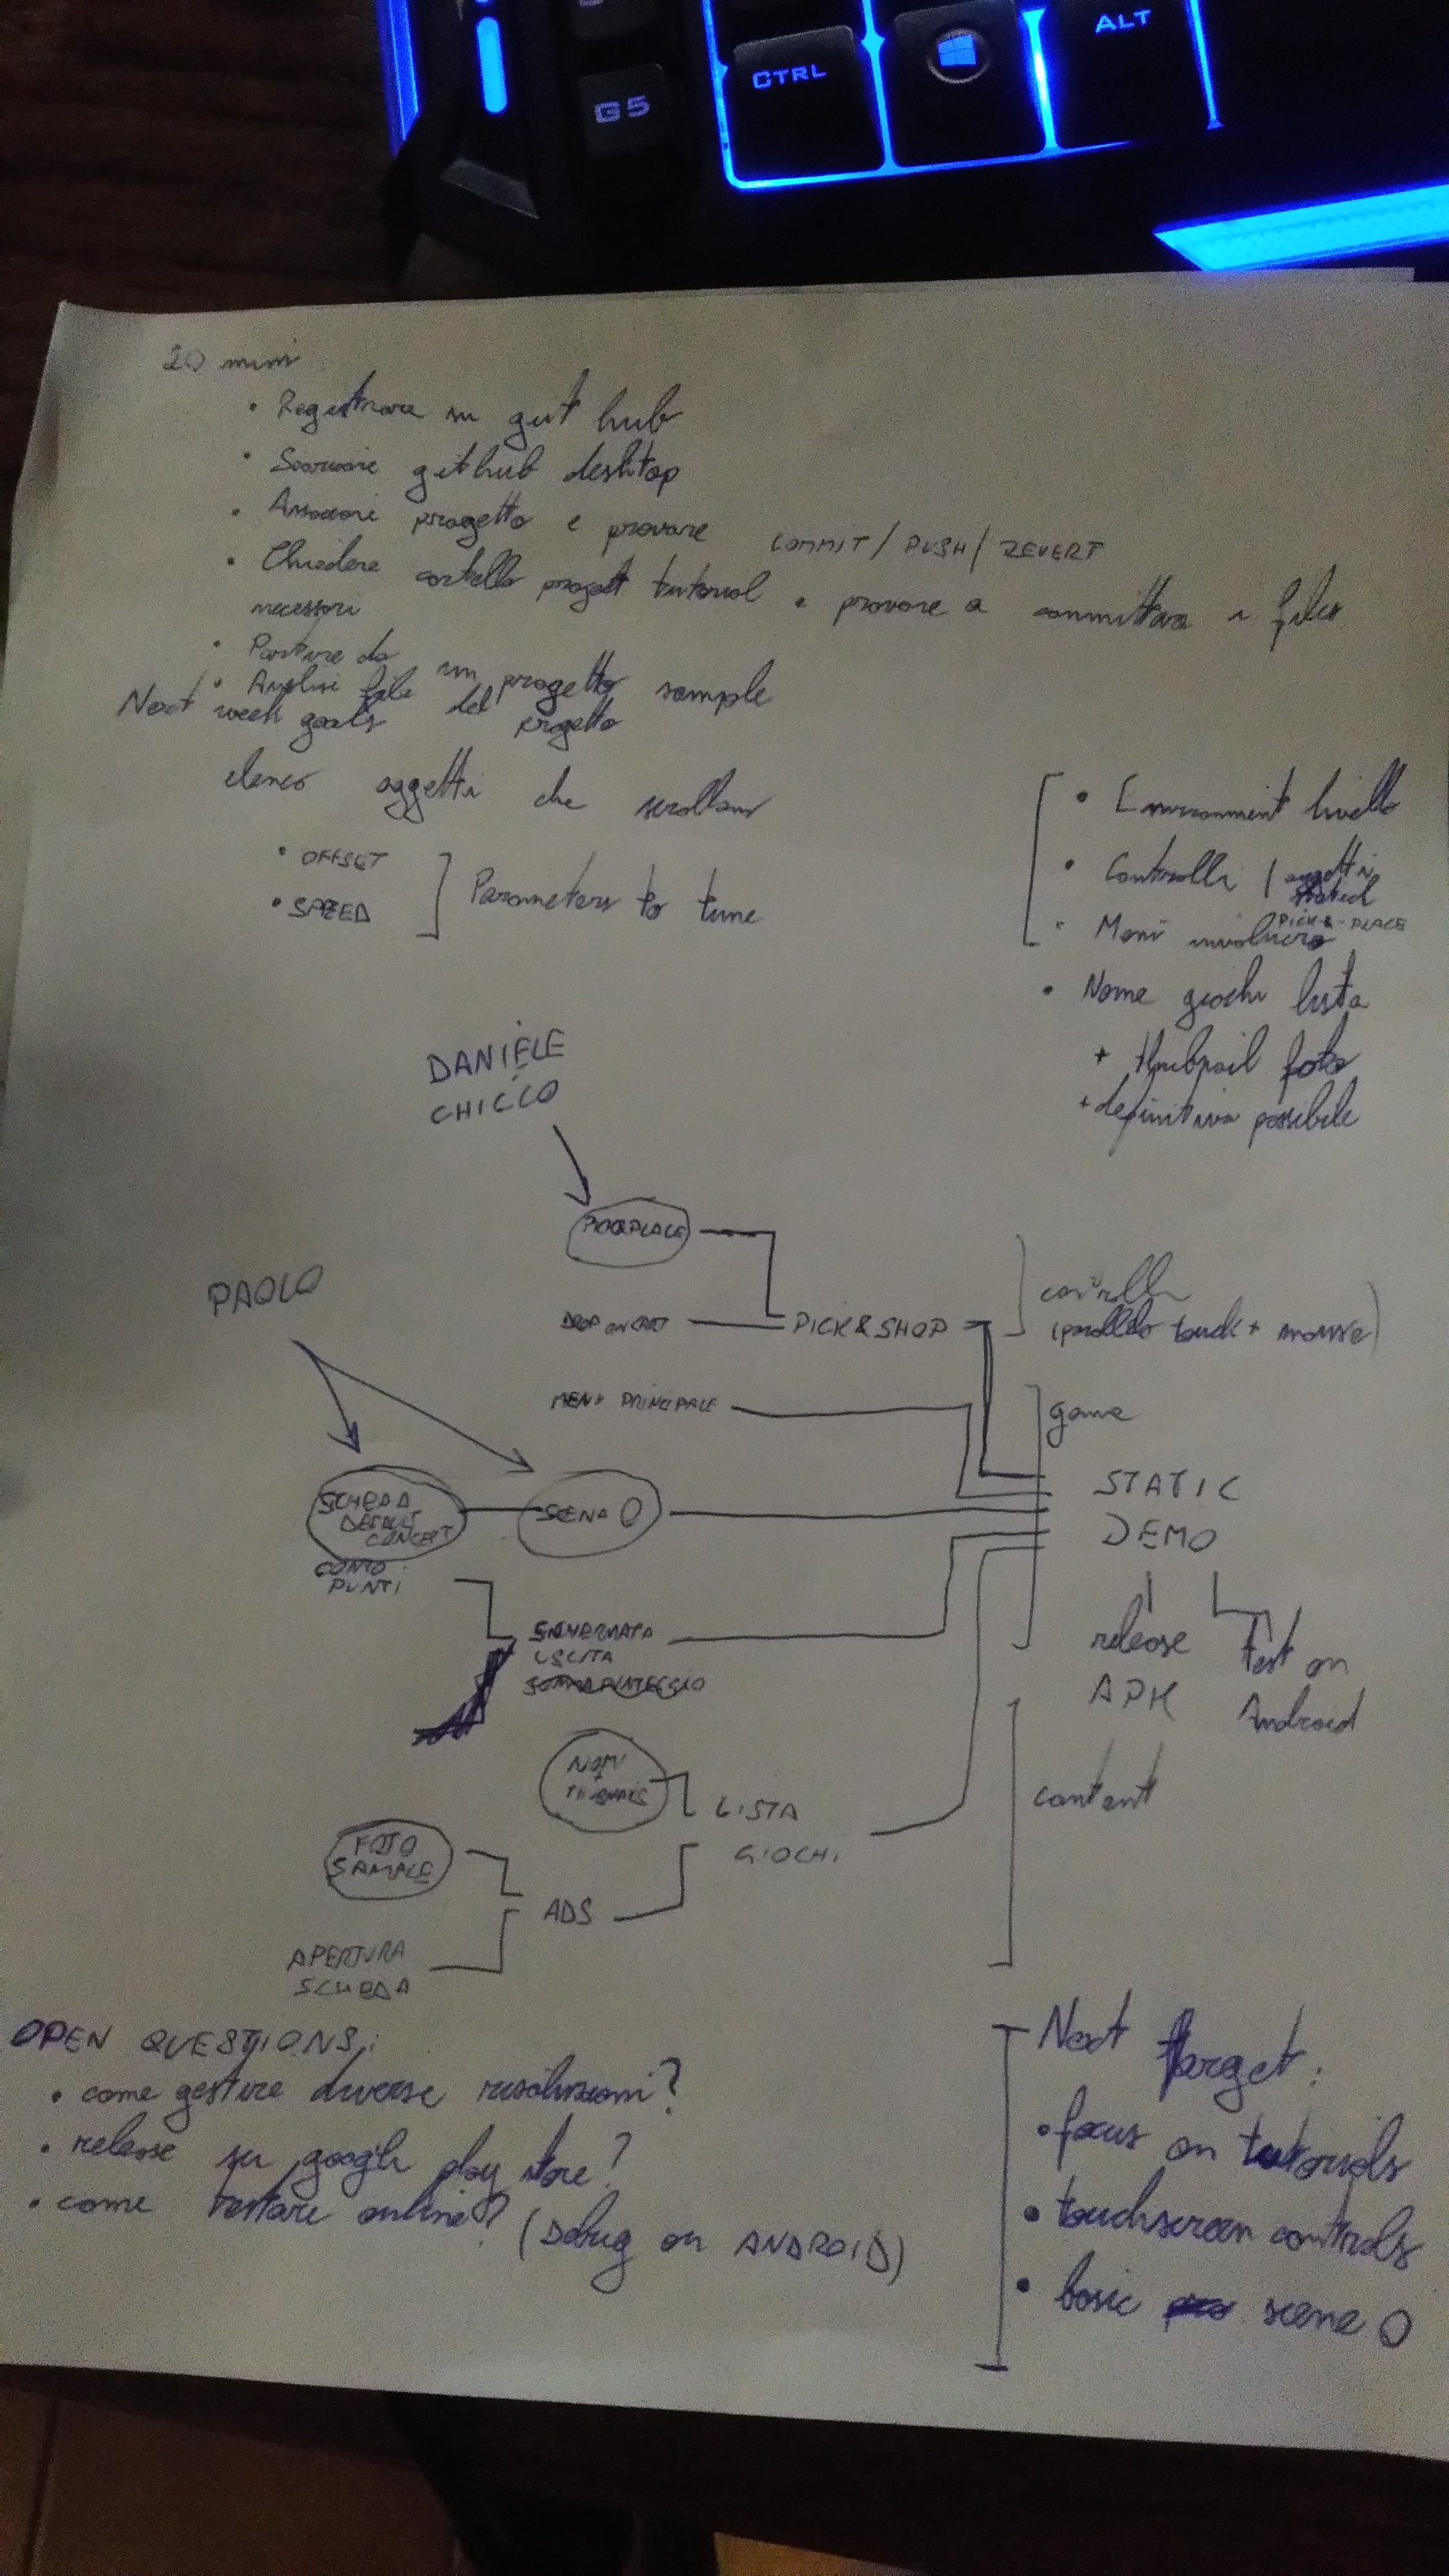 G5
CTRL
ALT
20 min
• Registrare su git hub
• Scaricare github desktop
• Associare progetto e provare COMMIT / PUSH / REVERT
• Chiedere progetti tutorial e provare a committare i files
necessari
• Partire da un progetto sample
• Analisi file del progetto
Next week goals
elenco oggetti che scrollano
• OFFSET
• SPEED
Parameters to tune
• Environment livello
• Controlli / oggetti
PICK & PLACE
• Menù involucro
• Nome giochi lista
+ foto
+ definitiva possibile
DANIELE
CHICCO
PICK&PLACE
PAOLO
DROP ON CART
PICK&SHOP
controlli
(parallelo touch + mouse)
MENÙ PRINCIPALE
game
SCHEDA
DEFAULT
CONCEPT
SCENA 0
STATIC
DEMO
CONTO
PUNTI
SCHERMATA
USCITA
release
APK
Test on
Android
NOMI
+
LISTA
GIOCHI
content
FOTO
SAMPLE
ADS
APERTURA
SCHEDA
OPEN QUESTIONS:
• come gestire diverse risoluzioni?
• release su google play store?
• come testare online? (Debug on ANDROID)
Next target:
• focus on tutorials
• touchscreen controls
• basic scene 0